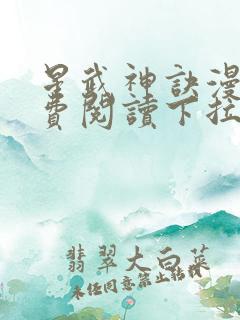 星武神訣漫
費閱讀下拉
翡翠大白菜
未经同意禁止转载